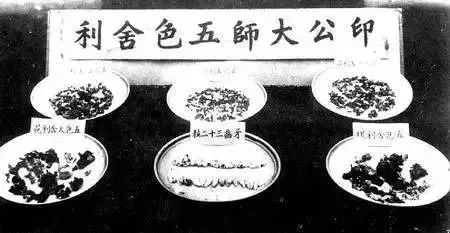 印公大師五色舍利
五色大舍利花
牙齒三十二粒
五色舍利塊